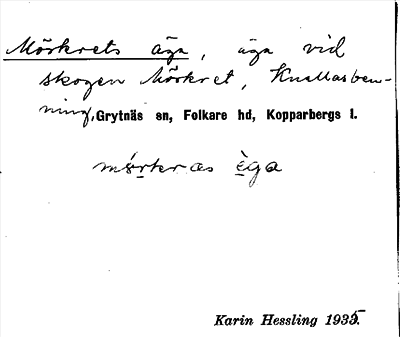 Mörkrets äga, äga vid
skogen Mörkret, Knallasben-
ning, Grytnäs sn, Folkare hd, Kopparbergs l.
mörkras èga
Karin Hessling 1935.